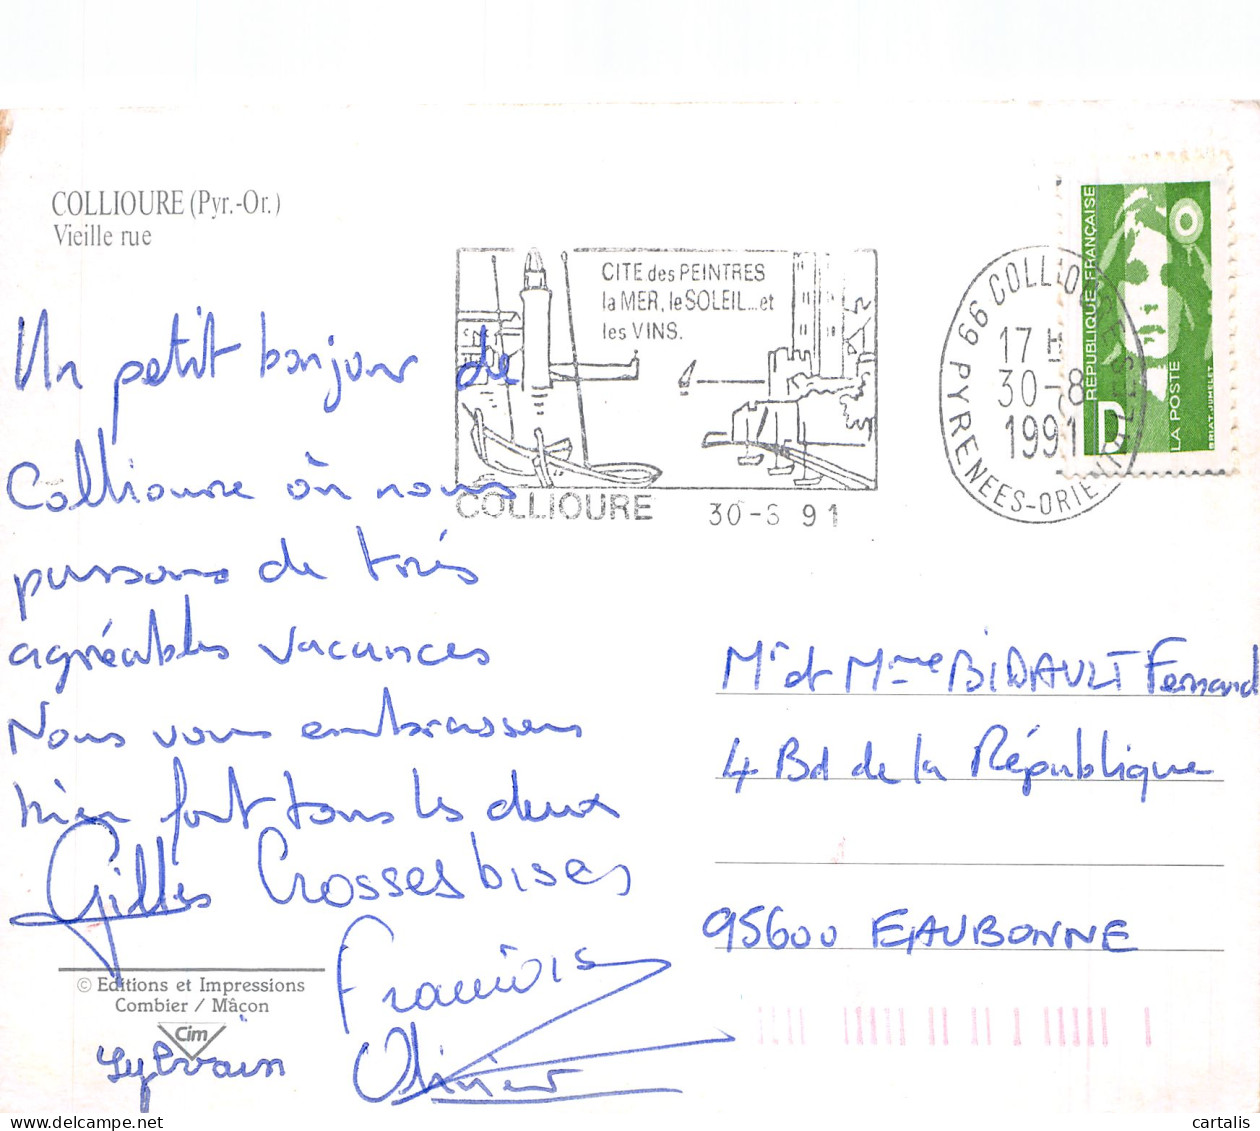 COLLIOURE (Pyr.-Or.)
Vieille rue
CITE des PEINTRES
la MER, le SOLEIL...et
les VINS.
COLLIOURE 30-8 91
66 COLLIOURE
17 H
30-8
1991
PYRENEES-ORIENTALES
REPUBLIQUE FRANÇAISE
D
LA POSTE
BRIAT-JUMELET
Un petit bonjour de
Collioure où nous
passons de très
agréables vacances
Nous vous embrassons
bien fort tous les deux
Gilles Grosses bises
Sylvain
Olivier
© Editions et Impressions
Combier / Mâcon
Cim
Mr et Mme BIDAULT Fernand
4 Bd de la République
95600 EAUBONNE
cartalis